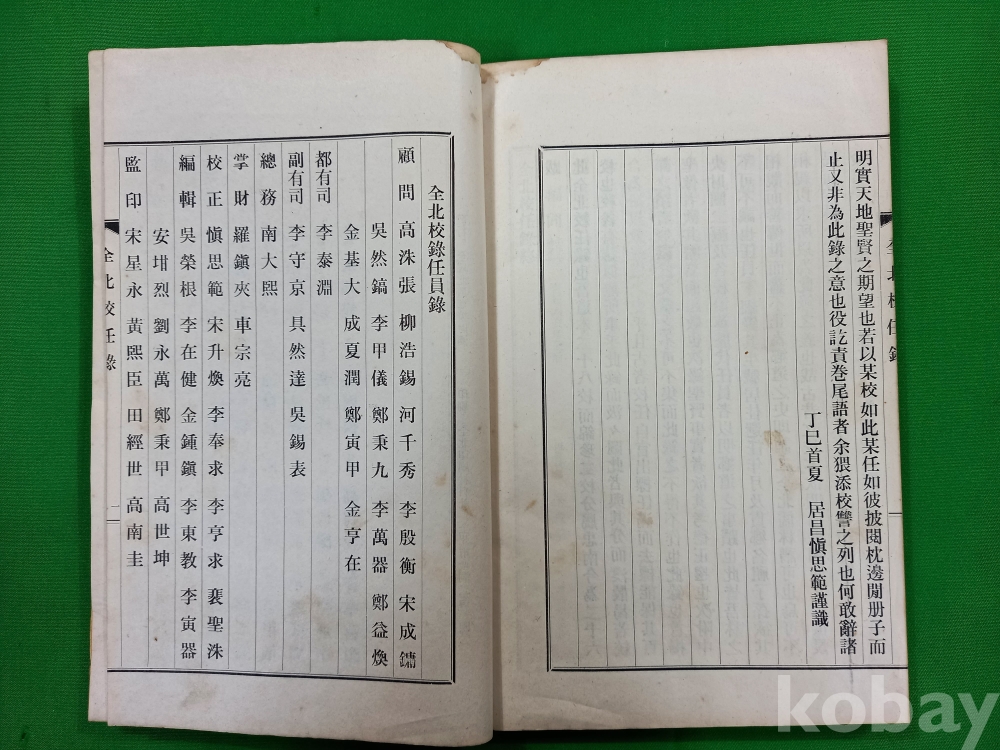 明實天地聖賢之期望也若以某校如此某任如彼披閱枕邊閒册子而
止又非為此錄之意也役訖責卷尾語者余猥添校讐之列也何敢辭諸
丁巳首夏 居昌愼思範謹識
全北校任錄
全北校錄任員錄
顧問 高洙張 柳浩錫 河千秀 李殷衡 宋成鏞
吳然鎬 李甲儀 鄭秉九 李萬器 鄭益煥
金基大 成夏潤 鄭寅甲 金亨在
都有司 李泰淵
副有司 李守京 具然達 吳錫表
總務 南大熙
掌財 羅鎭夾 車宗亮
校正 愼思範 宋升煥 李奉求 李亨求 裵聖洙
編輯 吳榮根 李在健 金鍾鎭 李東敎 李寅器
安壻烈 劉永萬 鄭秉甲 高世坤
監印 宋星永 黃熙臣 田經世 高南圭
全北校任錄
一
kobay